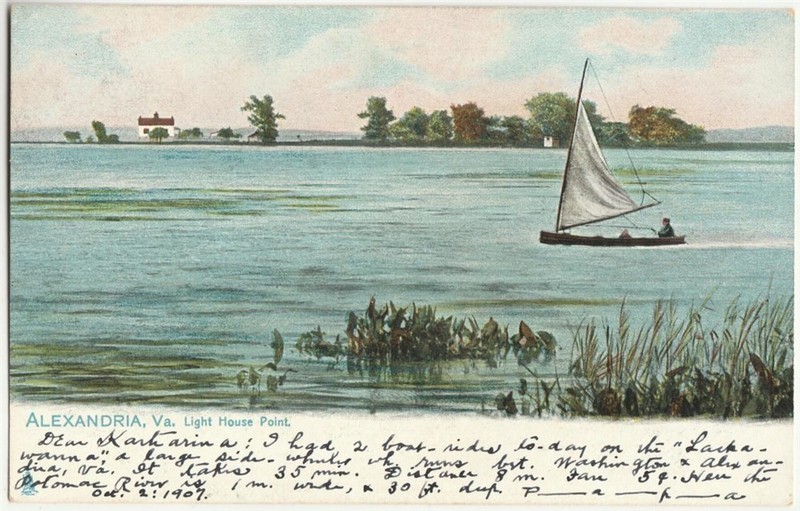 ALEXANDRIA, Va. Light House Point.
Dear Kartarina: I had 2 boat-rides to-day on the "Lacka-
wanna" a large side-wheeler wh. runs bet. Washington & Alexan-
dria, Va. It takes 35 min. Distance 8 m. Fare 5¢. Here the
Potomac River is 1 m. wide, & 30 ft. deep. P — a — p — a
Oct. 2: 1907.